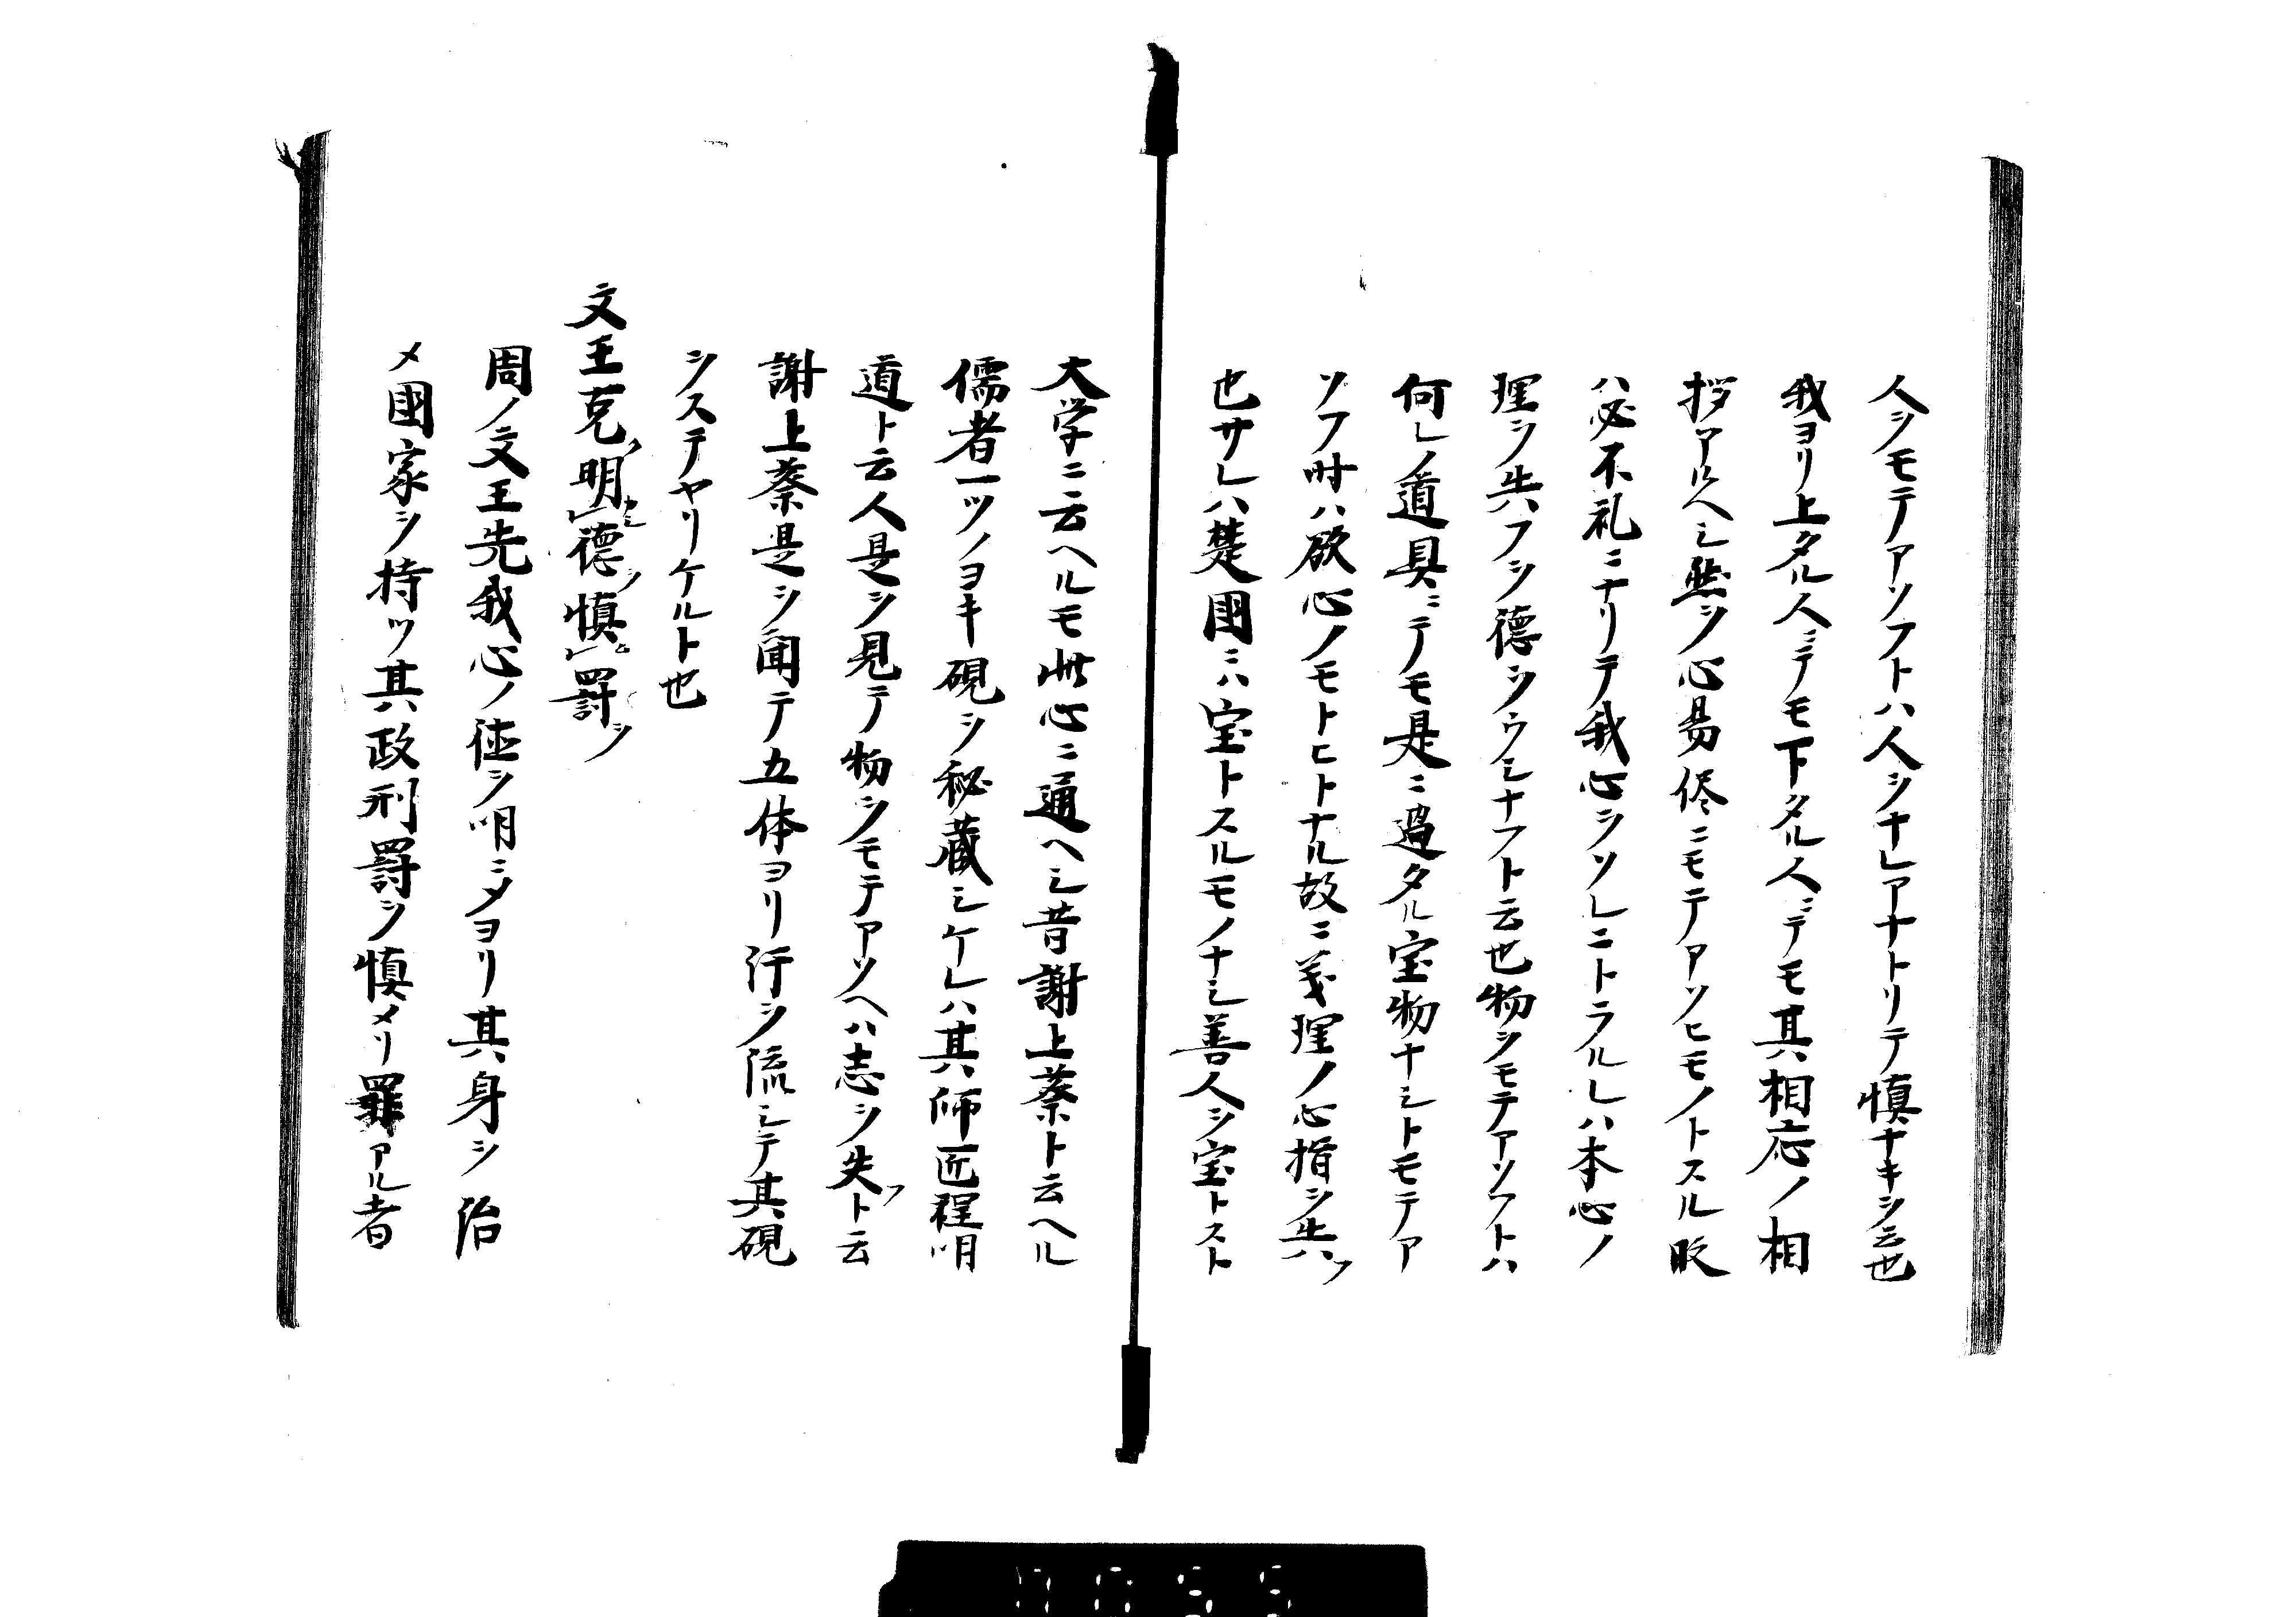 人ヲモテアソフトハ人ヲナレアナトリテ慎ナキヲ云也
我ヨリ上タル人ニテモ下タル人ニテモ其相応ノ相
拶アルヘシ然ヲ心易侭ニモテアソヒモノトスル時
ハ必不礼ニナリテ我心ヲソレニトラルレハ本心ノ
理ヲ失フヲ徳ヲウシナフト云也物ヲモテアソフトハ
何レノ道具ニテノモ是ニ過タル宝物ナシトモテア
ソフ時ハ欲心ノモトヒトナル故ニ義理ノ心指ヲ失フ
也サレハ楚国ニハ宝トスルモノナシ善人ヲ宝トスト
大学ニ云ヘルモ此心ニ通ヘシ昔謝上蔡ト云ヘル
儒者一ツノヨキ硯ヲ秘蔵シケレハ其師匠程明
道ト云人是ヲ見テ物ヲモテアソヘハ志ヲ失フト云
謝上蔡是ヲ聞テ五体ヨリ汗ヲ流シテ其硯
ヲステヤリケルト也
文王克ク明ニシ徳ヲ慎ム罰ヲ
周ノ文王先我心ノ徳ヲ明ニメヨリ其身ヲ治
メ国家ヲ持ツ其政刑罰ヲ慎メリ罪アル者